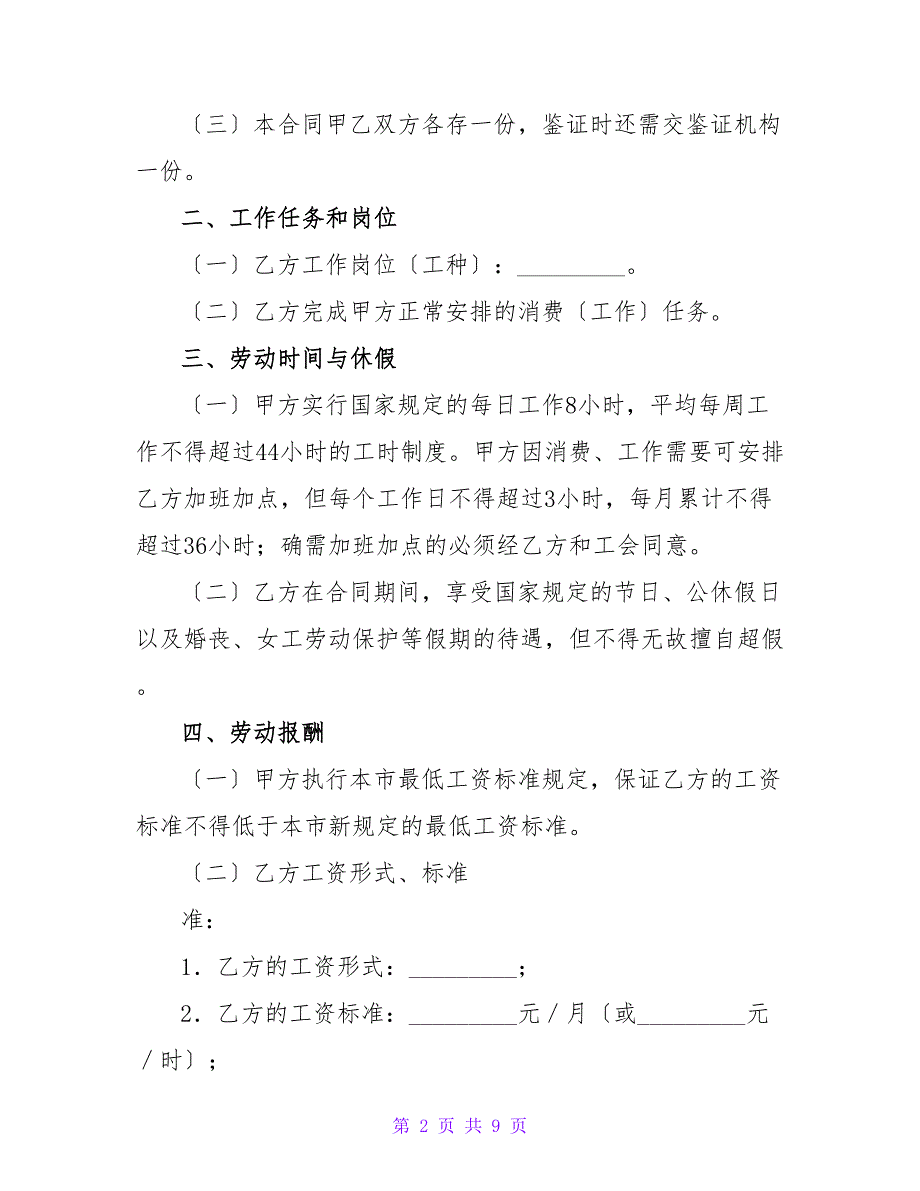 〔三〕本合同甲乙双方各存一份，鉴证时还需交鉴证机构
一份。
二、工作任务和岗位
〔一〕乙方工作岗位〔工种〕：_________。
〔二〕乙方完成甲方正常安排的消费〔工作〕任务。
三、劳动时间与休假
〔一〕甲方实行国家规定的每日工作8小时，平均每周工
作不得超过44小时的工时制度。甲方因消费、工作需要可安排
乙方加班加点，但每个工作日不得超过3小时，每月累计不得
超过36小时；确需加班加点的必须经乙方和工会同意。
〔二〕乙方在合同期间，享受国家规定的节日、公休假日
以及婚丧、女工劳动保护等假期的待遇，但不得无故擅自超假
。
四、劳动报酬
〔一〕甲方执行本市最低工资标准规定，保证乙方的工资
标准不得低于本市新规定的最低工资标准。
〔二〕乙方工资形式、标准
准：
1．乙方的工资形式：_________；
2．乙方的工资标准：_________元／月〔或_________元
／时〕；
第 2 页 共 9 页